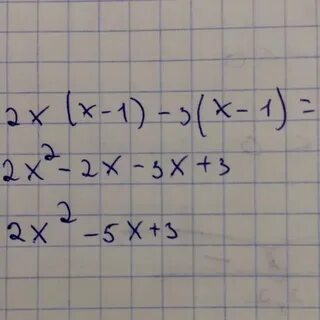 2x (x-1) -3(x-1) =
2x² - 2x - 3x + 3
2x² - 5x + 3